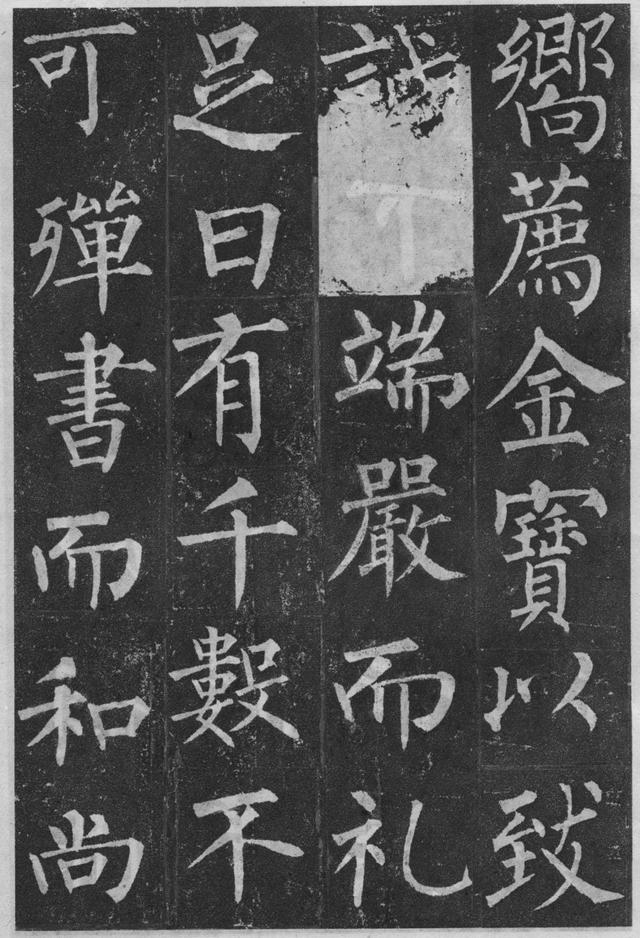 嚮薦金寶以致
誠丅端嚴而礼
足日有千數不
可殫書而和尚